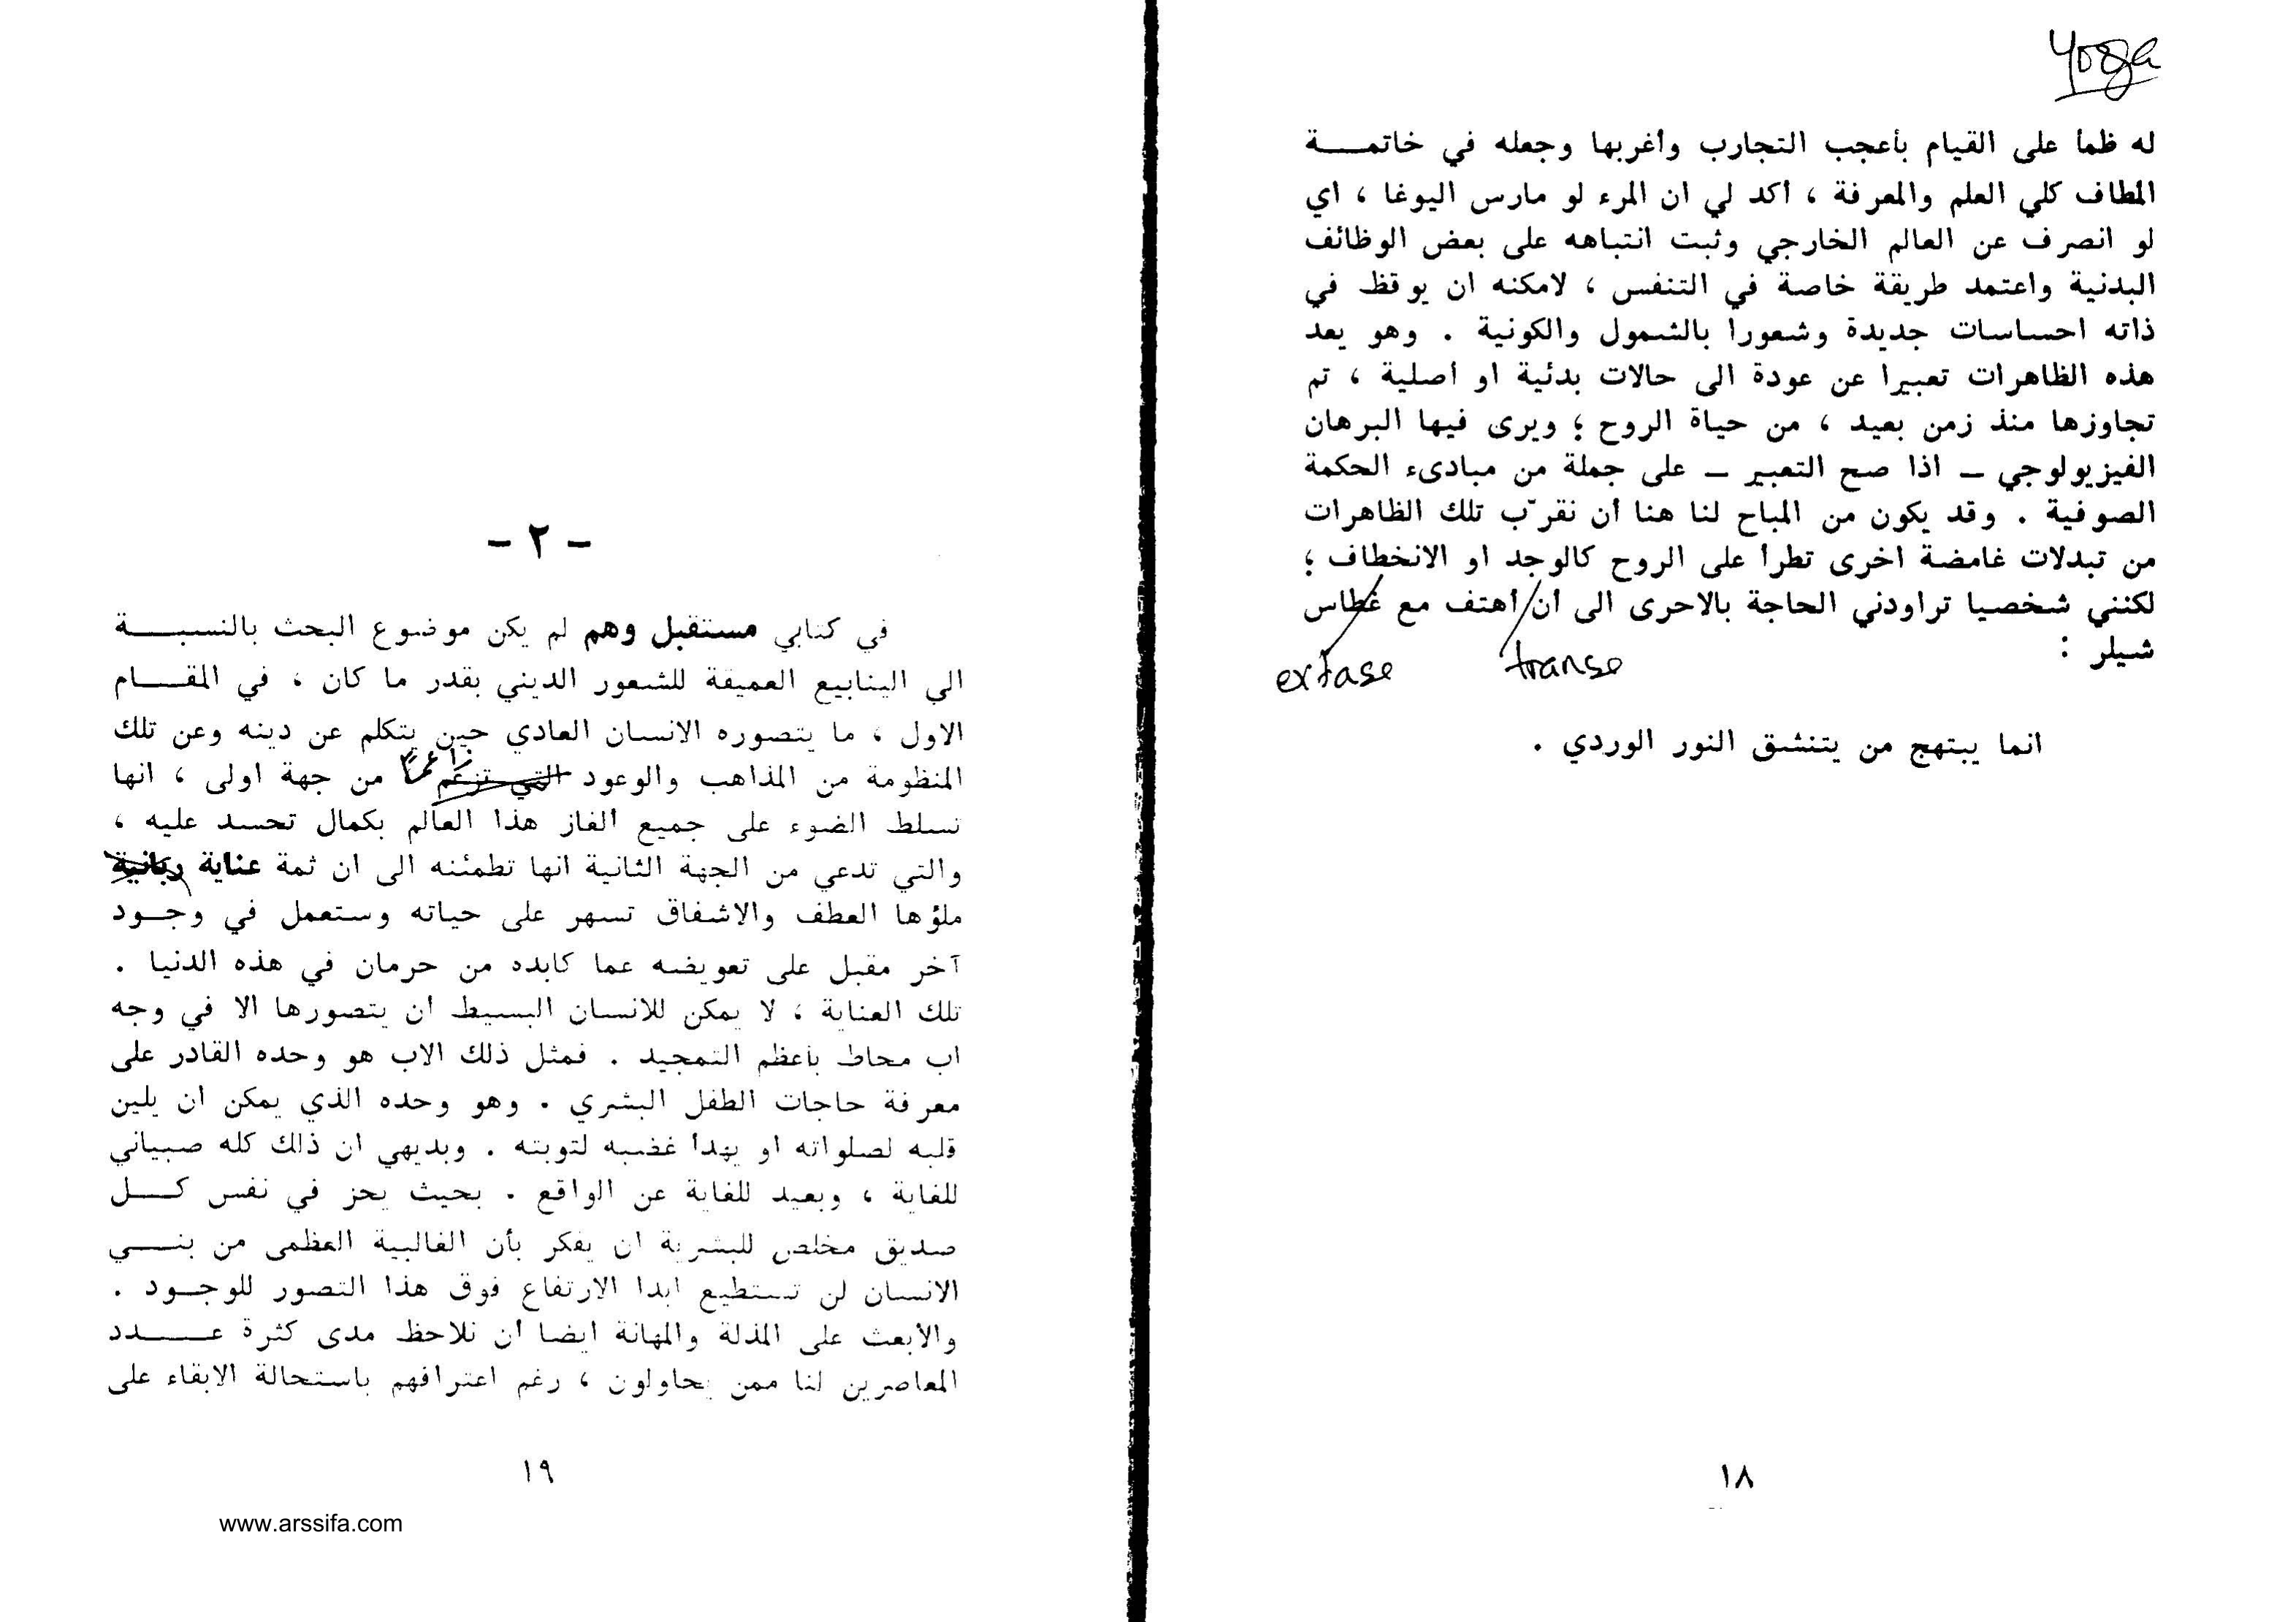 yoga
له ظمأ على القيام بأعجب التجارب وأغربها وجعله في خاتمـــة
المطاف كلي العلم والمعرفة ، أكد لي ان المرء لو مارس اليوغا ، اي
لو انصرف عن العالم الخارجي وثبت انتباهه على بعض الوظائف
البدنية واعتمد طريقة خاصة في التنفس ، لامكنه ان يوقظ في
ذاته احساسات جديدة وشعورا بالشمول والكونية . وهو يعد
هذه الظاهرات تعبيرا عن عودة الى حالات بدئية او أصلية ، تم
تجاوزها منذ زمن بعيد ، من حياة الروح ؛ ويرى فيها البرهان
الفيزيولوجي – اذا صح التعبير – على جملة من مبادىء الحكمة
الصوفية . وقد يكون من المباح لنا هنا أن نقرّب تلك الظاهرات
من تبدلات غامضة اخرى تطرأ على الروح كالوجد او الانخطاف ؛
لكنني شخصيا تراودني الحاجة بالاحرى الى أن أهتف مع غطاس
شيلر :
transe
extase
انما يبتهج من يتنشق النور الوردي .
١٨
– ٢ –
في كتابي مستقبل وهم لم يكن موضوع البحث بالنسبـــة
الي الينابيع العميقة للشعور الديني بقدر ما كان ، في المقـــام
الاول ، ما يتصوره الانسان العادي حين يتكلم عن دينه وعن تلك
المنظومة من المذاهب والوعود التي تزعم من جهة اولى ، انها
تسلط الضوء على جميع الغاز هذا العالم بكمال تحسد عليه ،
والتي تدعي من الجهة الثانية انها تطمئنه الى ان ثمة عناية ربانية
ملؤها العطف والاشفاق تسهر على حياته وستعمل في وجــود
آخر مقبل على تعويضه عما كابده من حرمان في هذه الدنيا .
تلك العناية ، لا يمكن للانسان البسيط ان يتصورها الا في وجه
اب محاط بأعظم التمجيد . فمثل ذلك الاب هو وحده القادر على
معرفة حاجات الطفل البشري . وهو وحده الذي يمكن ان يلين
قلبه لصلواته او يهدأ غضبه لتوبته . وبديهي ان ذلك كله صبياني
للغاية ، وبعيد للغاية عن الواقع . بحيث يحز في نفس كـــل
صديق مخلص للبشرية ان يفكر بأن الغالبية العظمى من بنـــي
الانسان لن تستطيع ابدا الارتفاع فوق هذا التصور للوجــود .
والابعث على المذلة والمهانة ايضا أن نلاحظ مدى كثرة عـــدد
المعاصرين لنا ممن يحاولون ، رغم اعترافهم باستحالة الابقاء على
١٩
www.arssifa.com